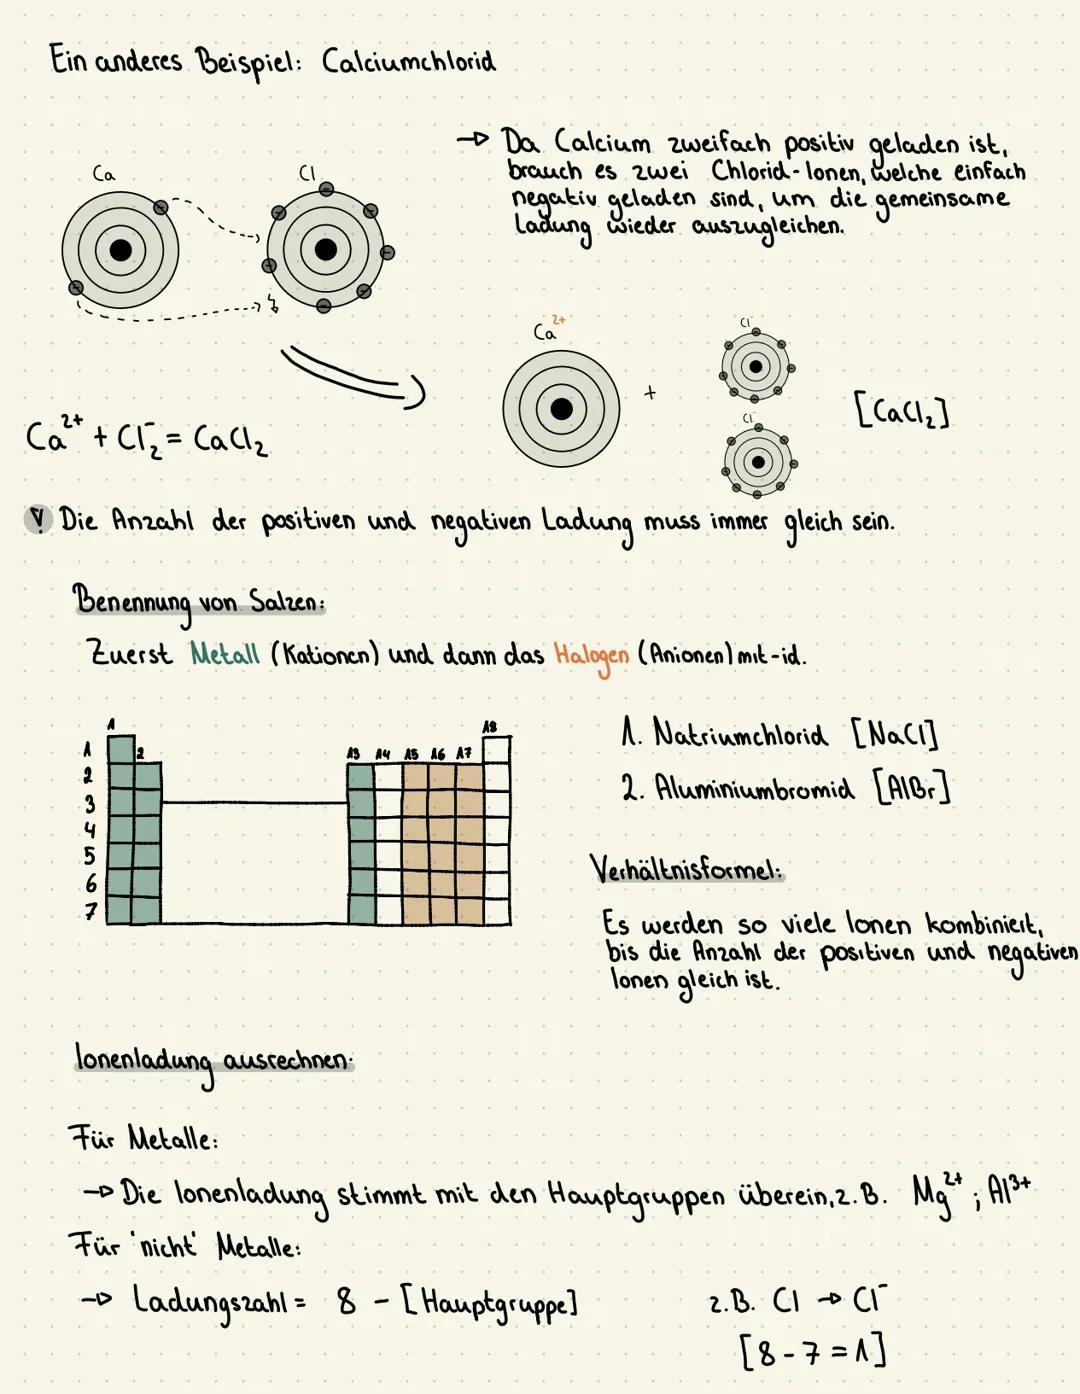 Ein anderes Beispiel: Calciumchlorid
→ Da Calcium zweifach positiv geladen ist,
brauch es zwei Chlorid-Ionen, welche einfach
negativ geladen sind, um die gemeinsame
Ladung wieder auszugleichen.
Ca Cl
Ca²⁺ + Cl⁻ Cl⁻ [CaCl₂]
Ca²⁺ + Cl₂⁻ = CaCl₂
Die Anzahl der positiven und negativen Ladung muss immer gleich sein.
Benennung von Salzen:
Zuerst Metall (Kationen) und dann das Halogen (Anionen) mit -id.
1 18
1 2 13 14 15 16 17
2
3
4
5
6
7
1. Natriumchlorid [NaCl]
2. Aluminiumbromid [AlBr]
Verhältnisformel:
Es werden so viele Ionen kombiniert,
bis die Anzahl der positiven und negativen
Ionen gleich ist.
Ionenladung ausrechnen:
Für Metalle:
→ Die Ionenladung stimmt mit den Hauptgruppen überein, z.B. Mg²⁺ ; Al³⁺
Für 'nicht' Metalle:
→ Ladungszahl = 8 - [Hauptgruppe] z.B. Cl → Cl⁻
[8 - 7 = 1]